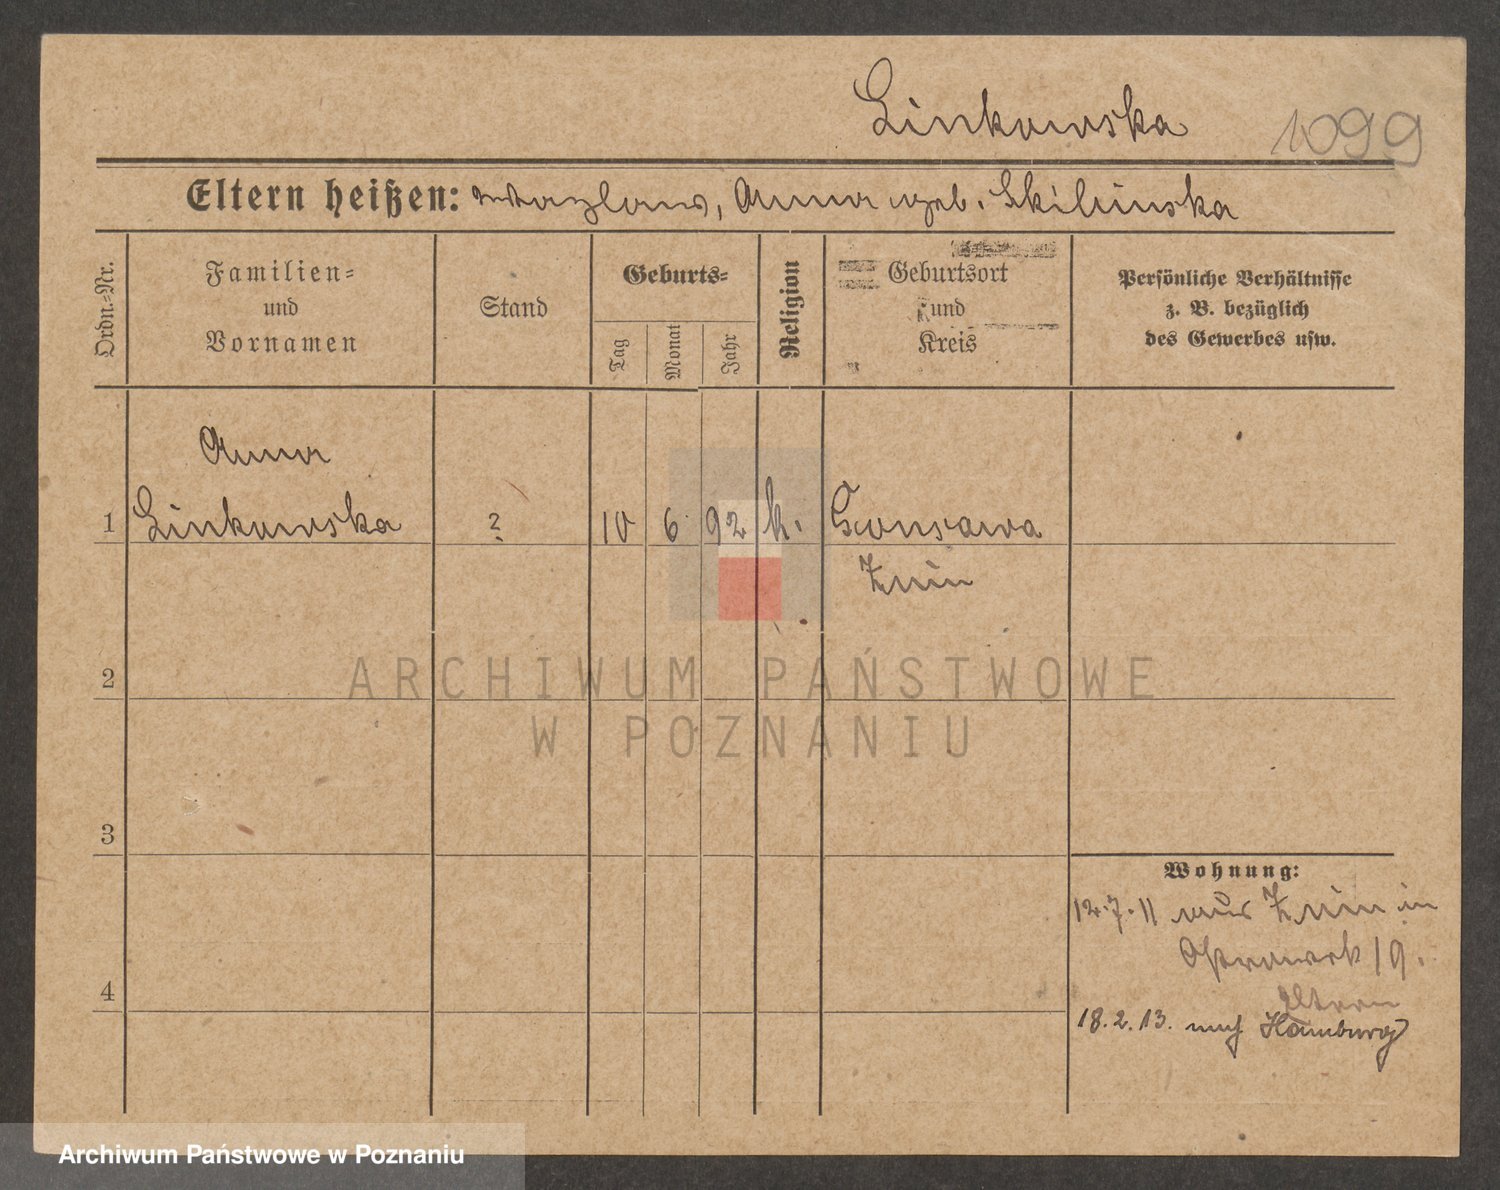 Linkowska 1099
Eltern heißen: Wazlaw, Anna geb. Skilinska
Ordn.=Nr.
Familien=
und
Vornamen
Stand
Geburts=
Tag
Monat
Jahr
Religion
Geburtsort
und
Kreis
Persönliche Verhältnisse
z. B. bezüglich
des Gewerbes usw.
Anna
1 Linkowska ? 10 6 92 k. Gonsawa
Znin
2
3
4
Wohnung:
12.7.11 aus Znin in
Ostrowek 19.
Eltern
18.2.13. nach Hamburg
ARCHIWUM PAŃSTWOWE
W POZNANIU
Archiwum Państwowe w Poznaniu